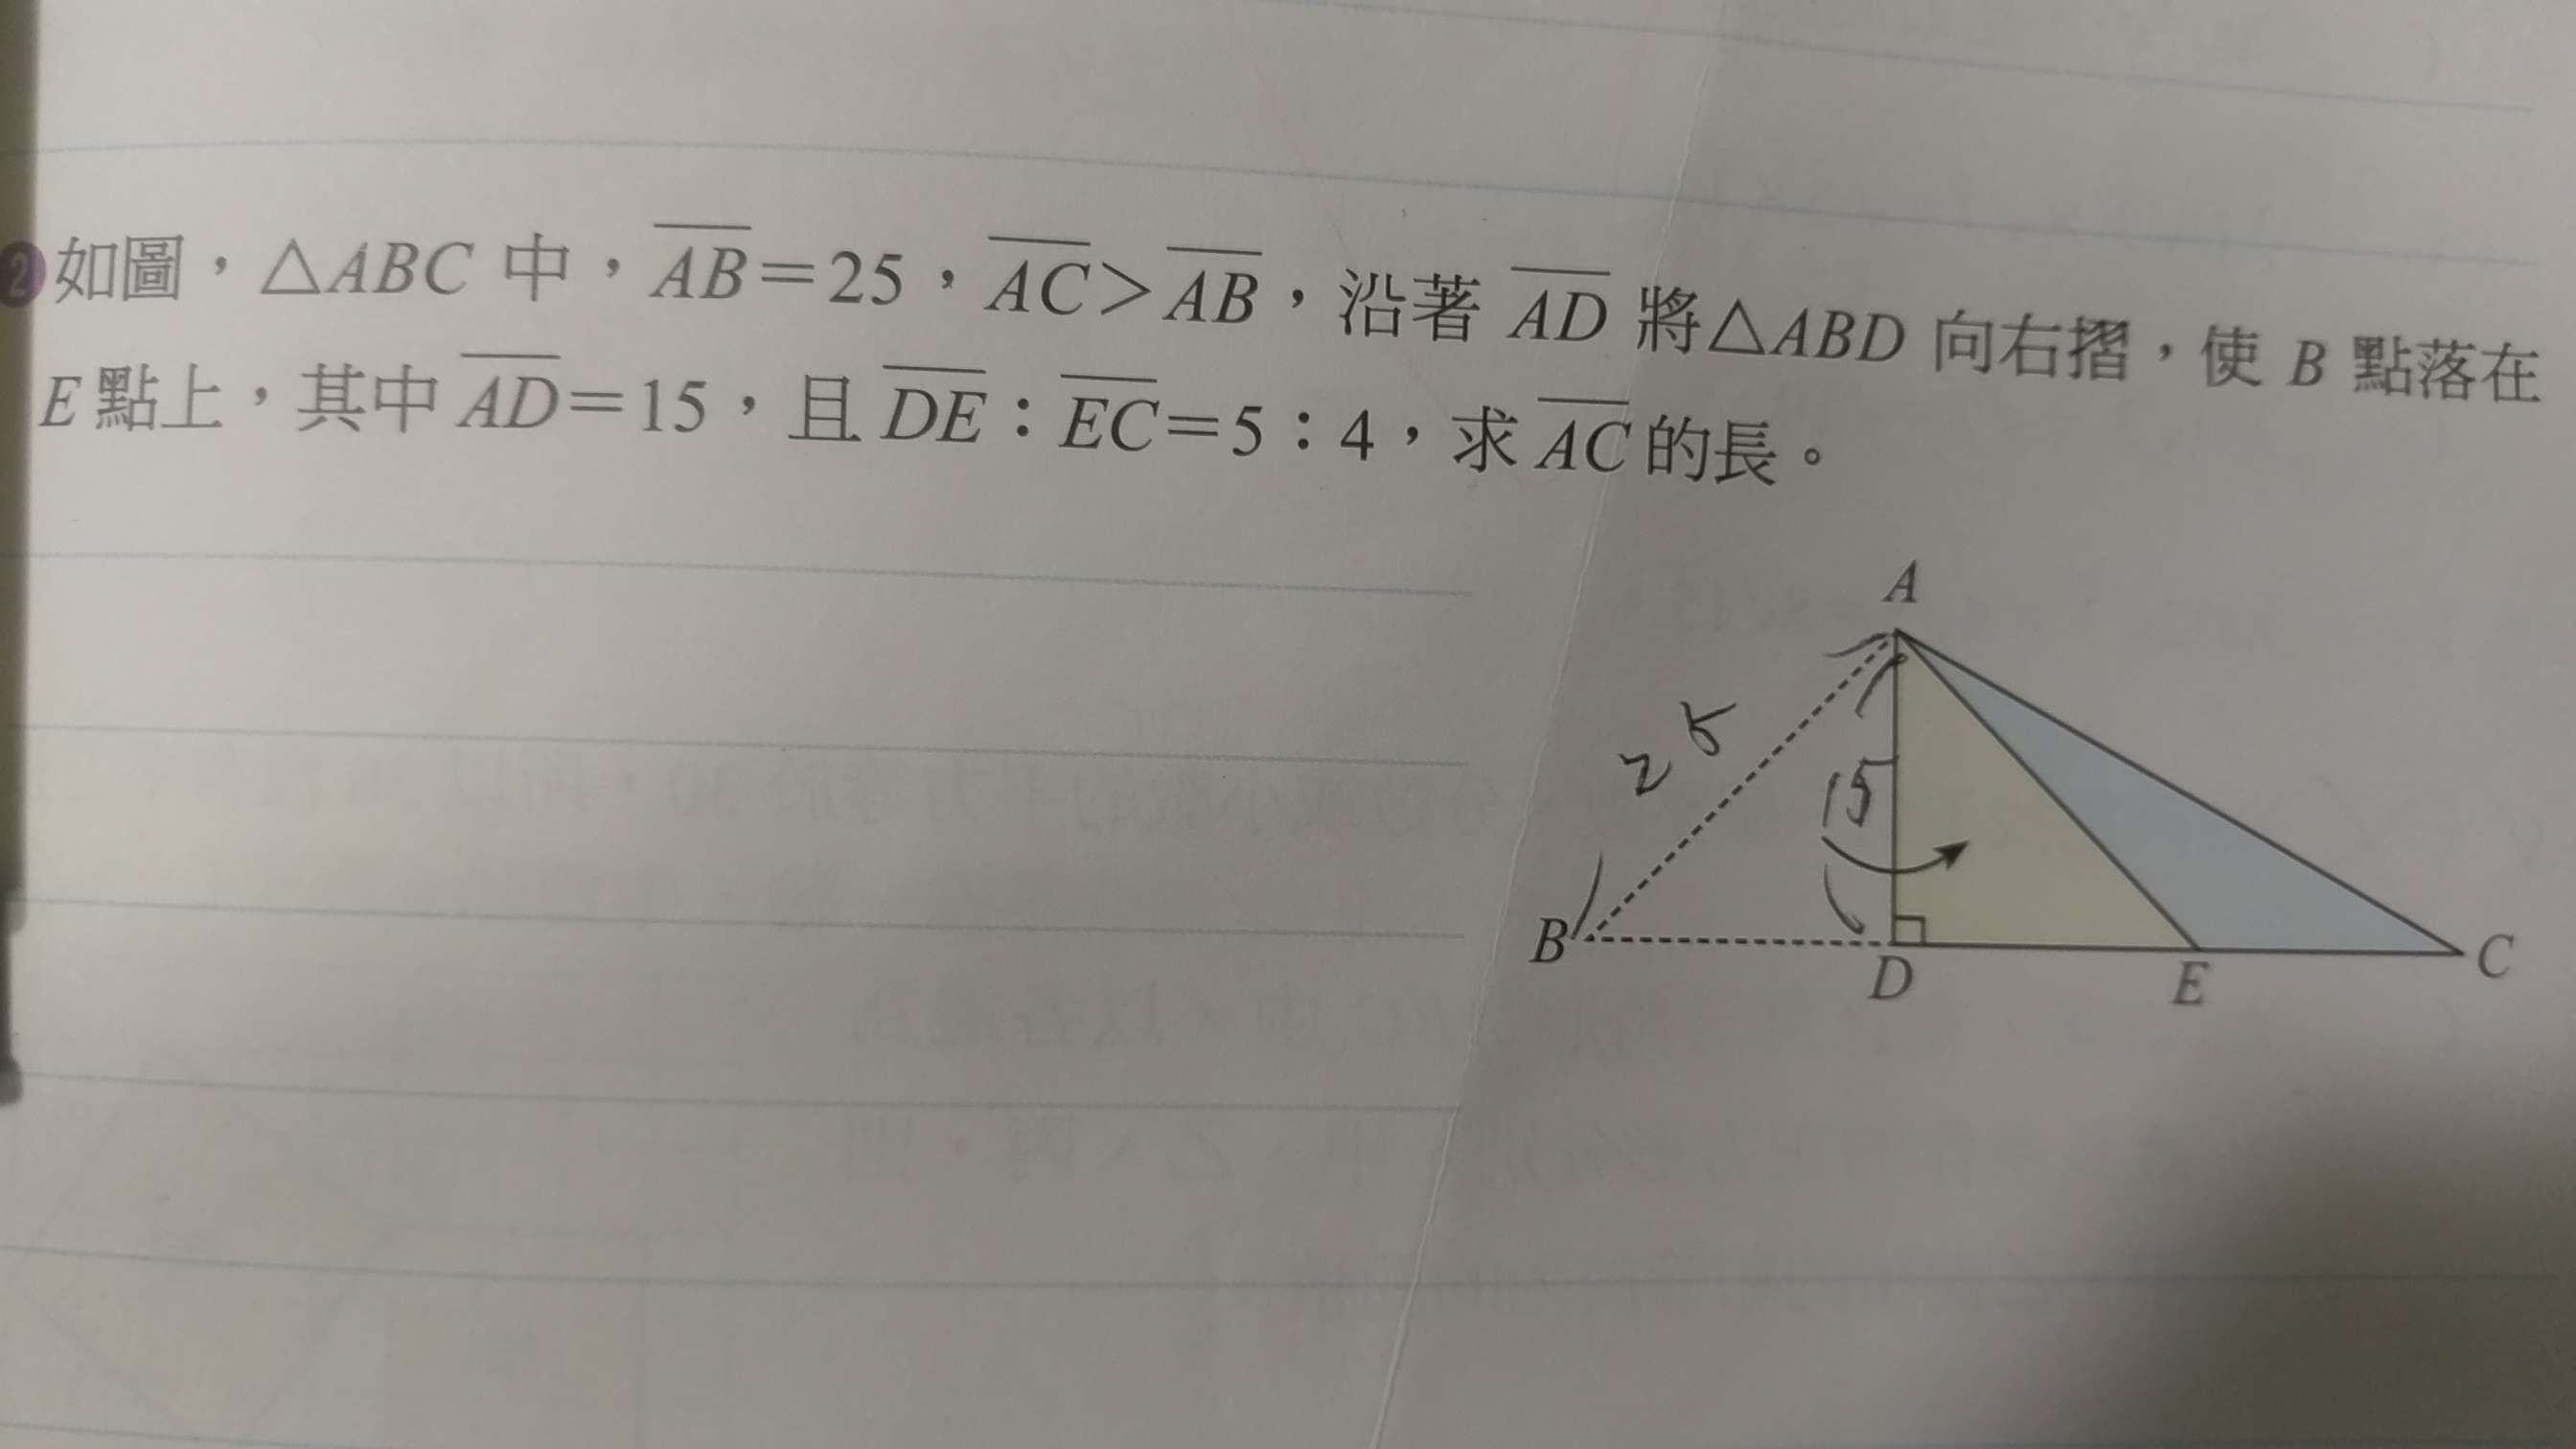 2 如圖，△ABC 中，AB=25，AC>AB，沿著 AD 將△ABD 向右摺，使 B 點落在
E點上，其中 AD=15，且 DE：EC=5：4，求 AC 的長。
A
25
15
B
D
E
C